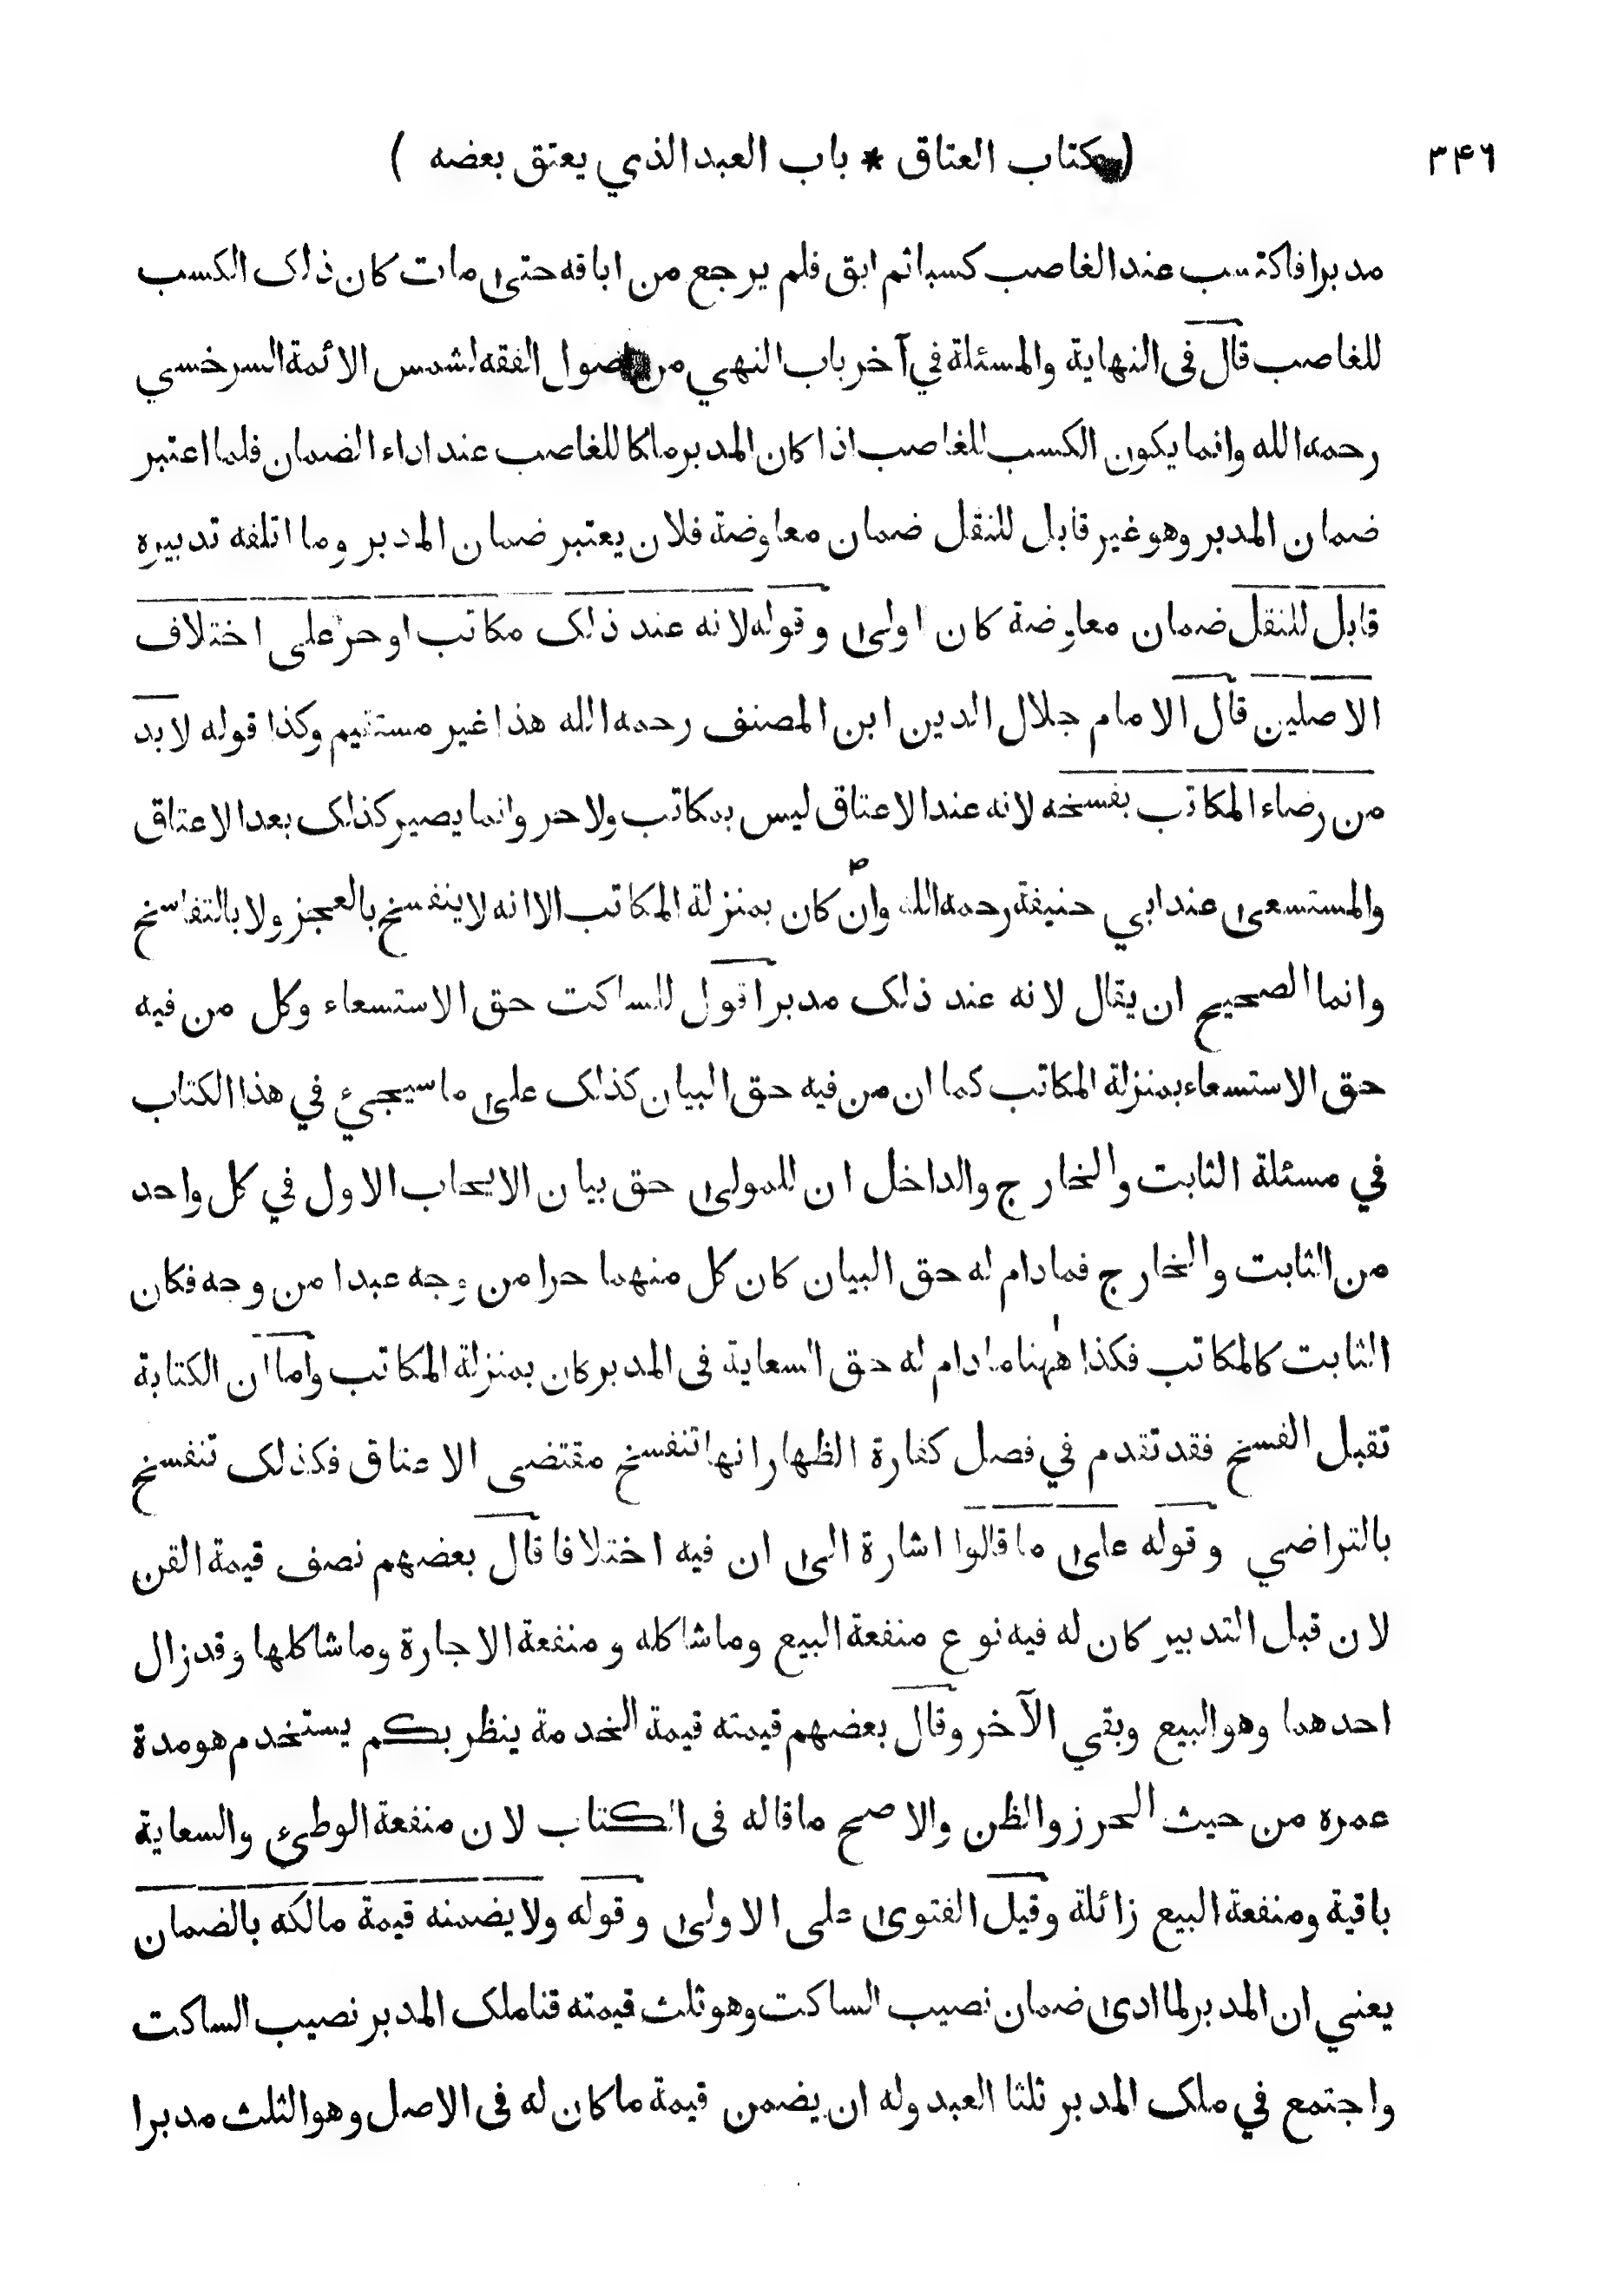 ۳۴۶
( كتاب العتاق * باب العبد الذي يعتق بعضه )
مدبرا فاكتسب عند الغاصب كسبا ثم ابق فلم يرجع من اباقه حتى مات كان ذلك الكسب
للغاصب قال فى النهاية والمسئلة في آخر باب النهي من اصول الفقه لشمس الائمة السرخسي
رحمه الله وانما يكون الكسب للغاصب اذا كان المدبر ملكا للغاصب عند اداء الضمان فلما اعتبر
ضمان المدبر وهو غير قابل للنقل ضمان معاوضة فلان يعتبر ضمان المدبر وما اتلفه تدبيره
قابل للنقل ضمان معاوضة كان اولى وقوله لانه عند ذلك مكاتب او حر على اختلاف
الاصلين قال الامام جلال الدين ابن المصنف رحمه الله هذا غير مستقيم وكذا قوله لابد
من رضاء المكاتب بفسخه لانه عند الاعتاق ليس بمكاتب ولا حر وانما يصير كذلك بعد الاعتاق
والمستسعى عند ابي حنيفة رحمه الله وان كان بمنزلة المكاتب الا انه لا ينفسخ بالعجز ولا بالتفاسخ
وانما الصحيح ان يقال لانه عند ذلك مدبر اقول للساكت حق الاستسعاء وكل من فيه
حق الاستسعاء بمنزلة المكاتب كما ان من فيه حق البيان كذلك على ما سيجيئ في هذا الكتاب
في مسئلة الثابت والخارج والداخل ان للمولى حق بيان الايجاب الاول في كل واحد
من الثابت والخارج فمادام له حق البيان كان كل منهما حرا من وجه عبدا من وجه فكان
الثابت كالمكاتب فكذا ههنا مادام له حق السعاية فى المدبر كان بمنزلة المكاتب واما ان الكتابة
تقبل الفسخ فقد تقدم في فصل كفارة الظهار انها تنفسخ مقتضى الاعتاق فكذلك تنفسخ
بالتراضي وقوله على ما قالوا اشارة الى ان فيه اختلافا قال بعضهم نصف قيمة القن
لان قبل التدبير كان له فيه نوع منفعة البيع وما شاكله ومنفعة الاجارة وما شاكلها وقد زال
احدهما وهو البيع وبقي الآخر وقال بعضهم قيمته قيمة الخدمة ينظر بكم يستخدم هو مدة
عمره من حيث الحرز والظن والاصح ما قاله فى الكتاب لان منفعة الوطئ والسعاية
باقية ومنفعة البيع زائلة وقيل الفتوى على الاولى وقوله ولا يضمنه قيمة مالكه بالضمان
يعني ان المدبر لما ادى ضمان نصيب الساكت وهو ثلث قيمته قنا ملك المدبر نصيب الساكت
واجتمع في ملك المدبر ثلثا العبد وله ان يضمن قيمة ما كان له فى الاصل وهو الثلث مدبرا